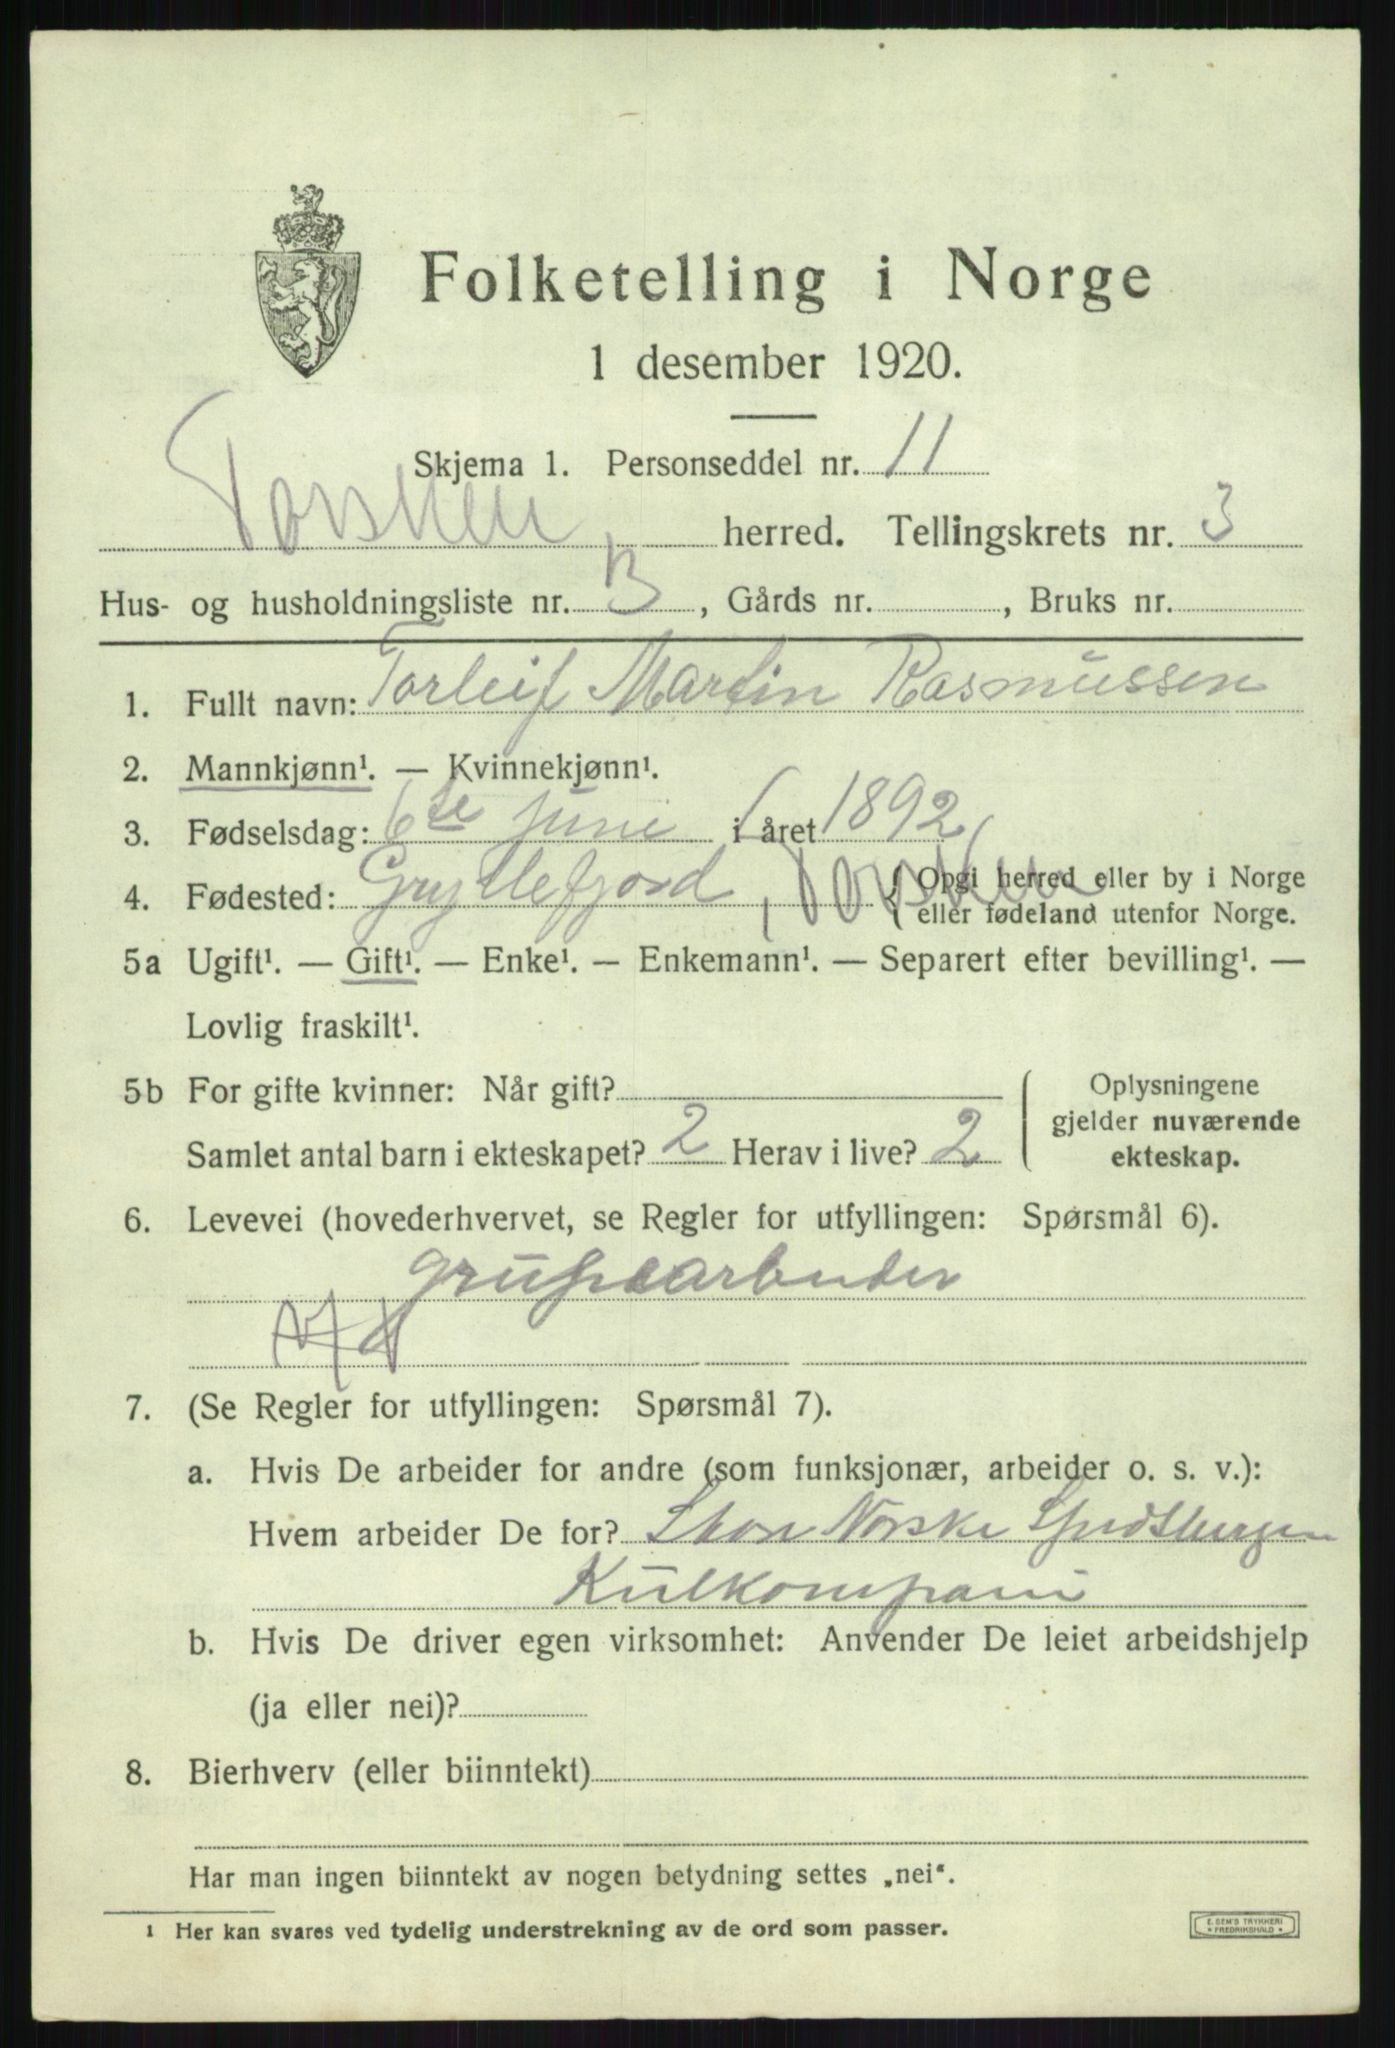 Folketelling i Norge
1 desember 1920.
Skjema 1. Personseddel nr. 11
Torsken herred. Tellingskrets nr. 3
Hus- og husholdningsliste nr. B, Gårds nr. , Bruks nr.
1. Fullt navn: Torleif Martin Rasmussen
2. Mannkjønn¹. — Kvinnekjønn¹.
3. Fødselsdag: 6te juni i året 1892
4. Fødested: Gryllefjord, Torsken { Opgi herred eller by i Norge
eller fødeland utenfor Norge.
5a Ugift¹. — Gift¹. — Enke¹. — Enkemann¹. — Separert efter bevilling¹. —
Lovlig fraskilt¹.
5b For gifte kvinner: Når gift?
Samlet antal barn i ekteskapet? 2 Herav i live? 2
Oplysningene
gjelder nuværende
ekteskap.
6. Levevei (hovederhvervet, se Regler for utfyllingen: Spørsmål 6).
grubearbeider
7. (Se Regler for utfyllingen: Spørsmål 7).
a. Hvis De arbeider for andre (som funksjonær, arbeider o. s. v.):
Hvem arbeider De for? Store Norske Spidsbergen
Kulkompani
b. Hvis De driver egen virksomhet: Anvender De leiet arbeidshjelp
(ja eller nei)?
8. Bierhverv (eller biinntekt)
Har man ingen biinntekt av nogen betydning settes „nei".
1 Her kan svares ved tydelig understrekning av de ord som passer.
E. SEM'S TRYKKERI
* FREDRIKSHALD *